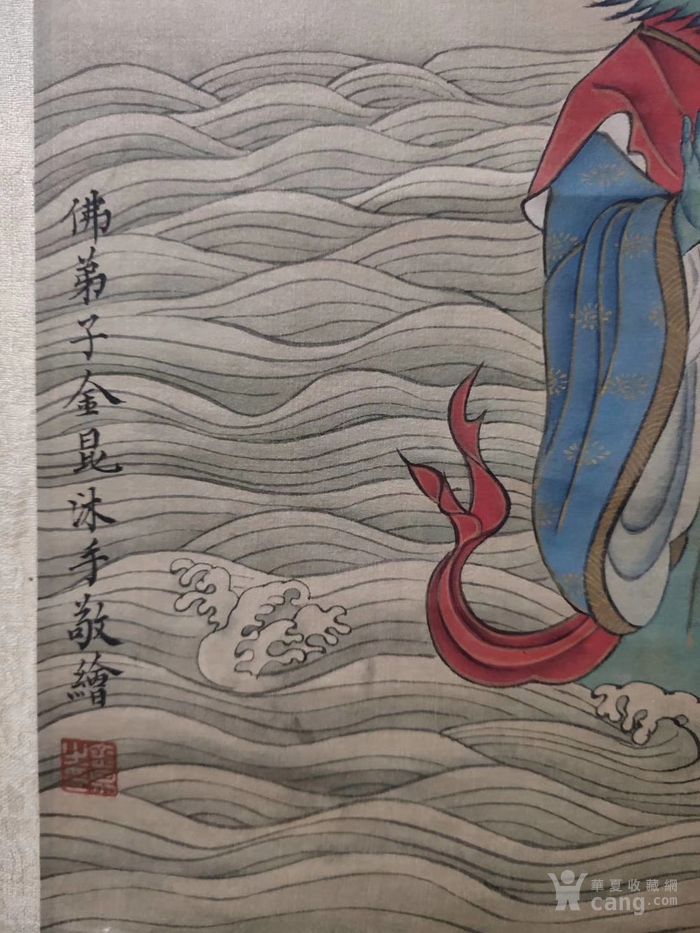 佛弟子金昆沐手敬繪
華夏收藏網
cang.com